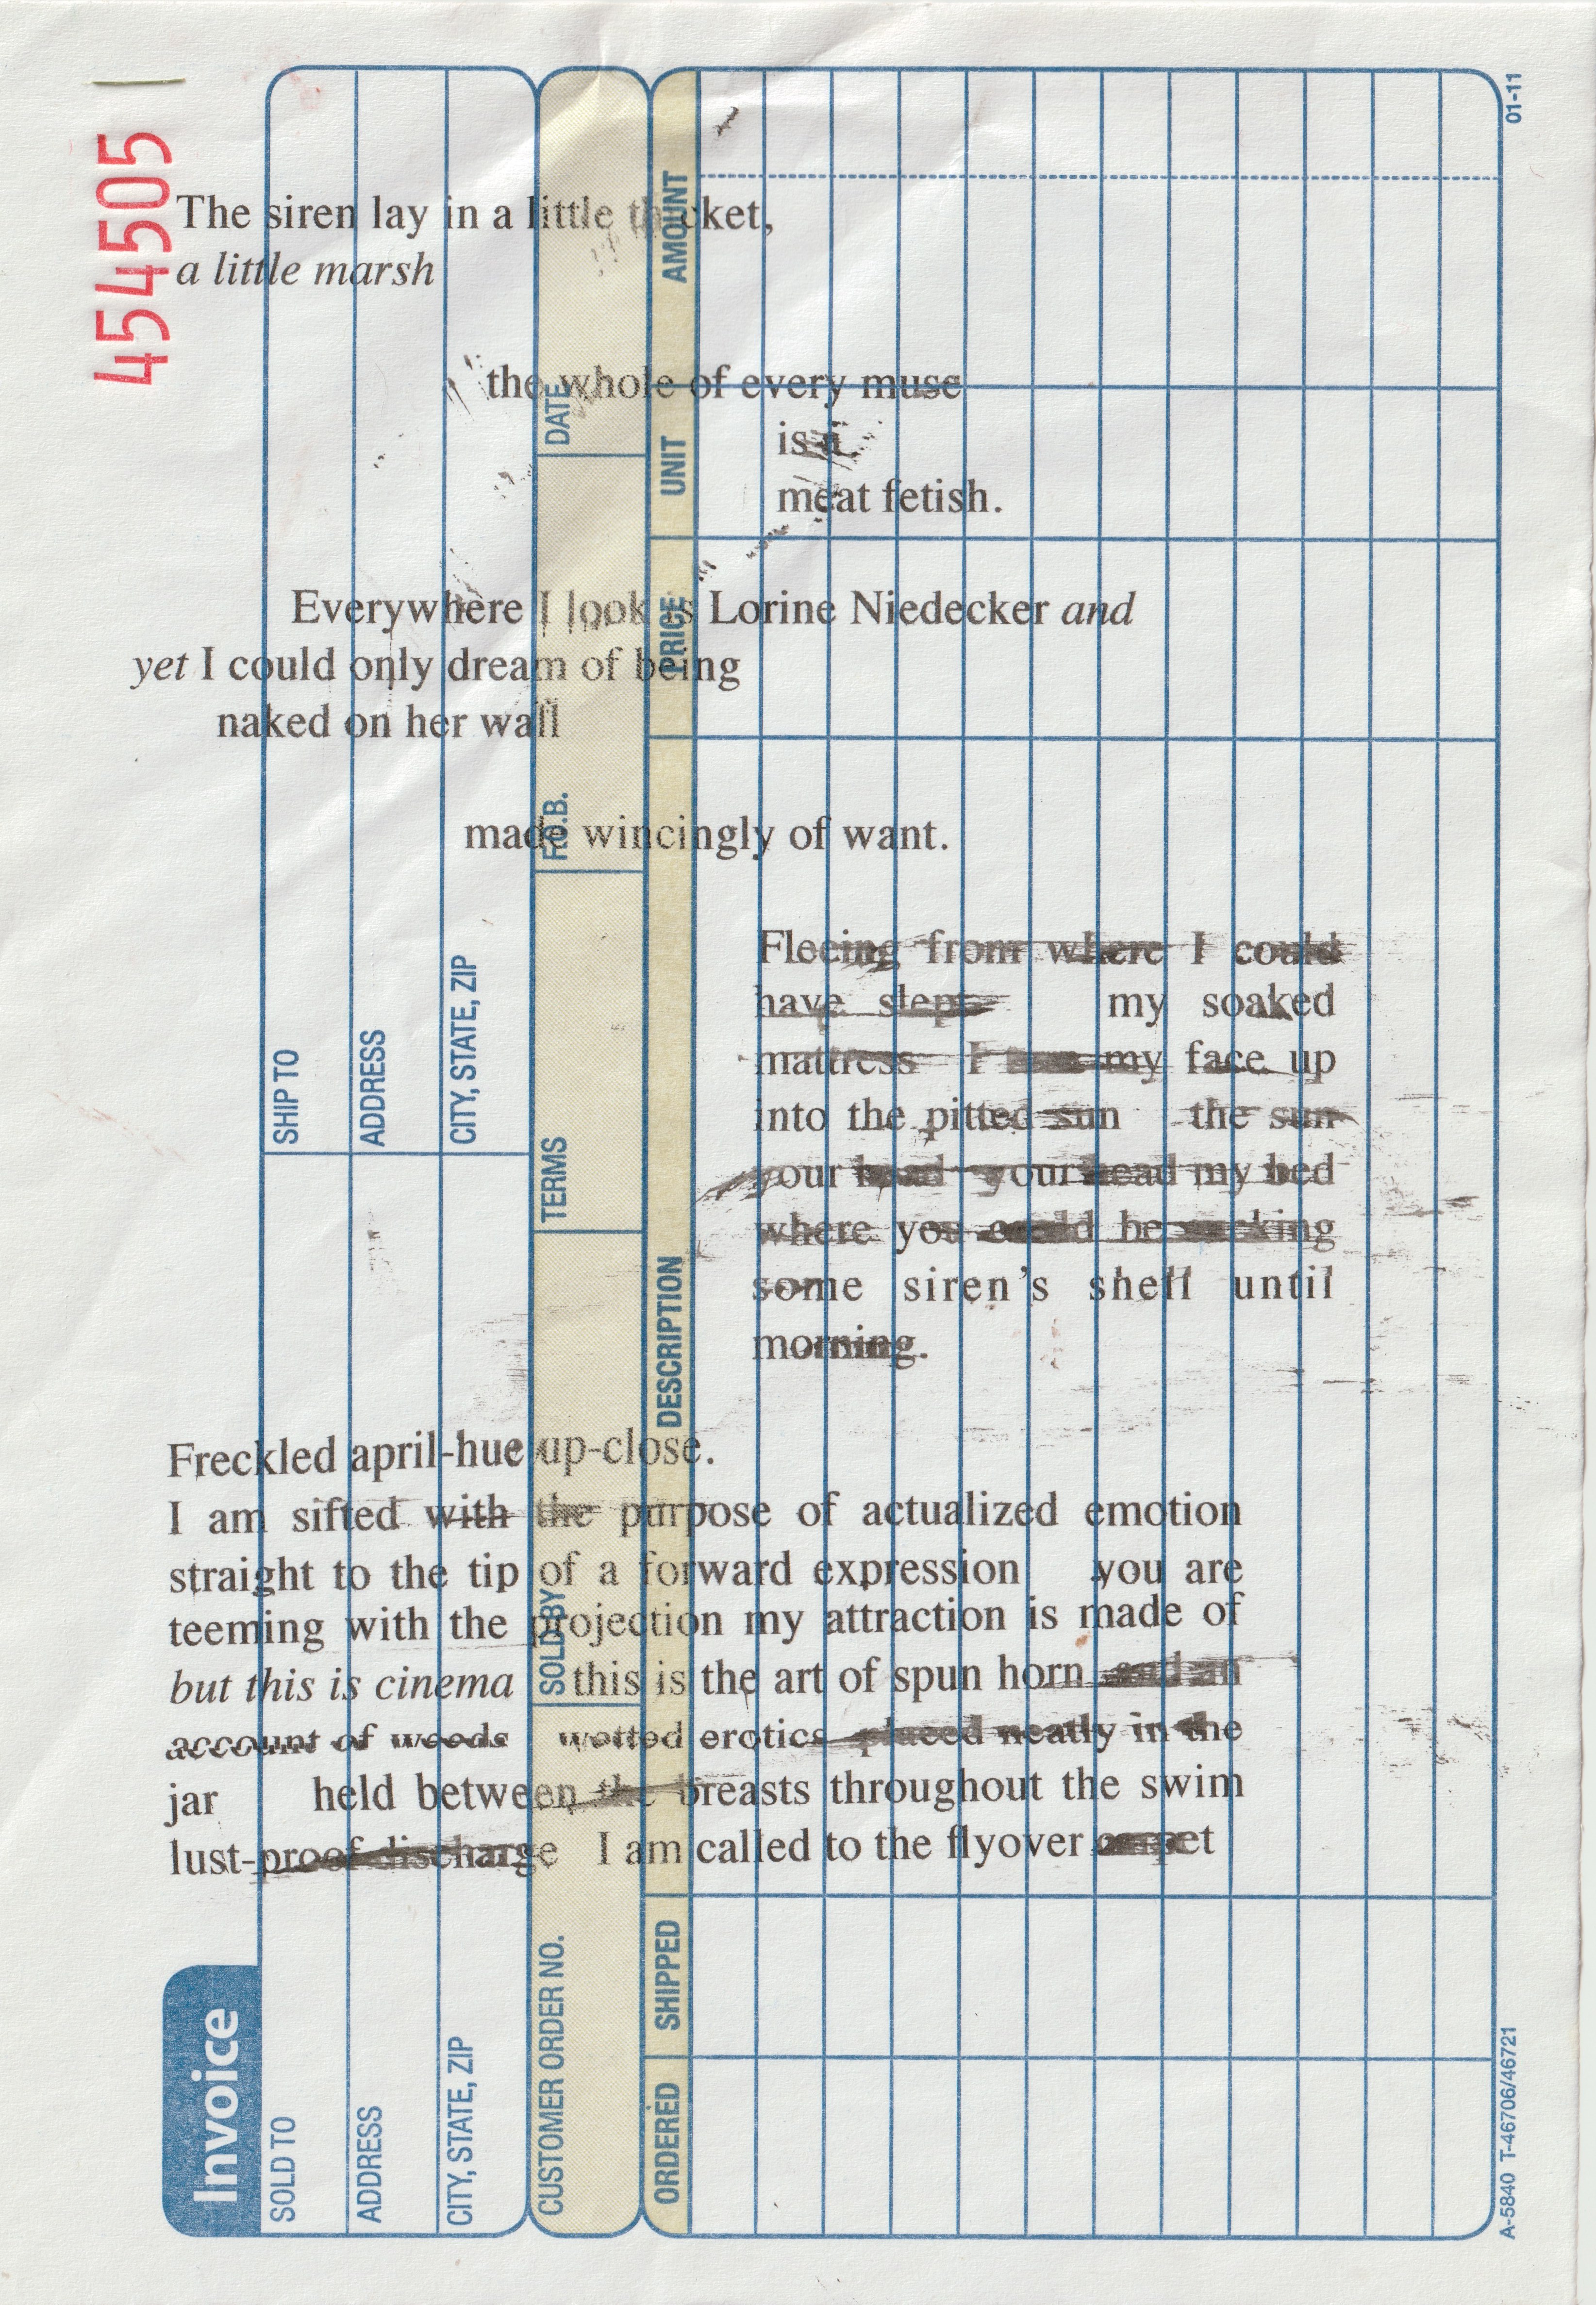 454505
The siren lay in a little thicket,
a little marsh
the whole of every muse
is a
meat fetish.
Everywhere I look is Lorine Niedecker and
yet I could only dream of being
naked on her wall
made wincingly of want.
Fleeing from where I could
have slept my soaked
mattress I my face up
into the pitted sun the sun
your head your head my bed
where you could be sucking
some siren's shell until
morning.
Freckled april-hue up-close.
I am sifted with the purpose of actualized emotion
straight to the tip of a forward expression you are
teeming with the projection my attraction is made of
but this is cinema this is the art of spun horn and an
account of weeds wetted erotics placed neatly in the
jar held between the breasts throughout the swim
lust-proof discharge I am called to the flyover carpet
Invoice
SOLD TO
ADDRESS
CITY, STATE, ZIP
SHIP TO
ADDRESS
CITY, STATE, ZIP
CUSTOMER ORDER NO.
SOLD BY
TERMS
F.O.B.
DATE
ORDERED
SHIPPED
DESCRIPTION
PRICE
UNIT
AMOUNT
A-5840 T-46706/46721
01-11